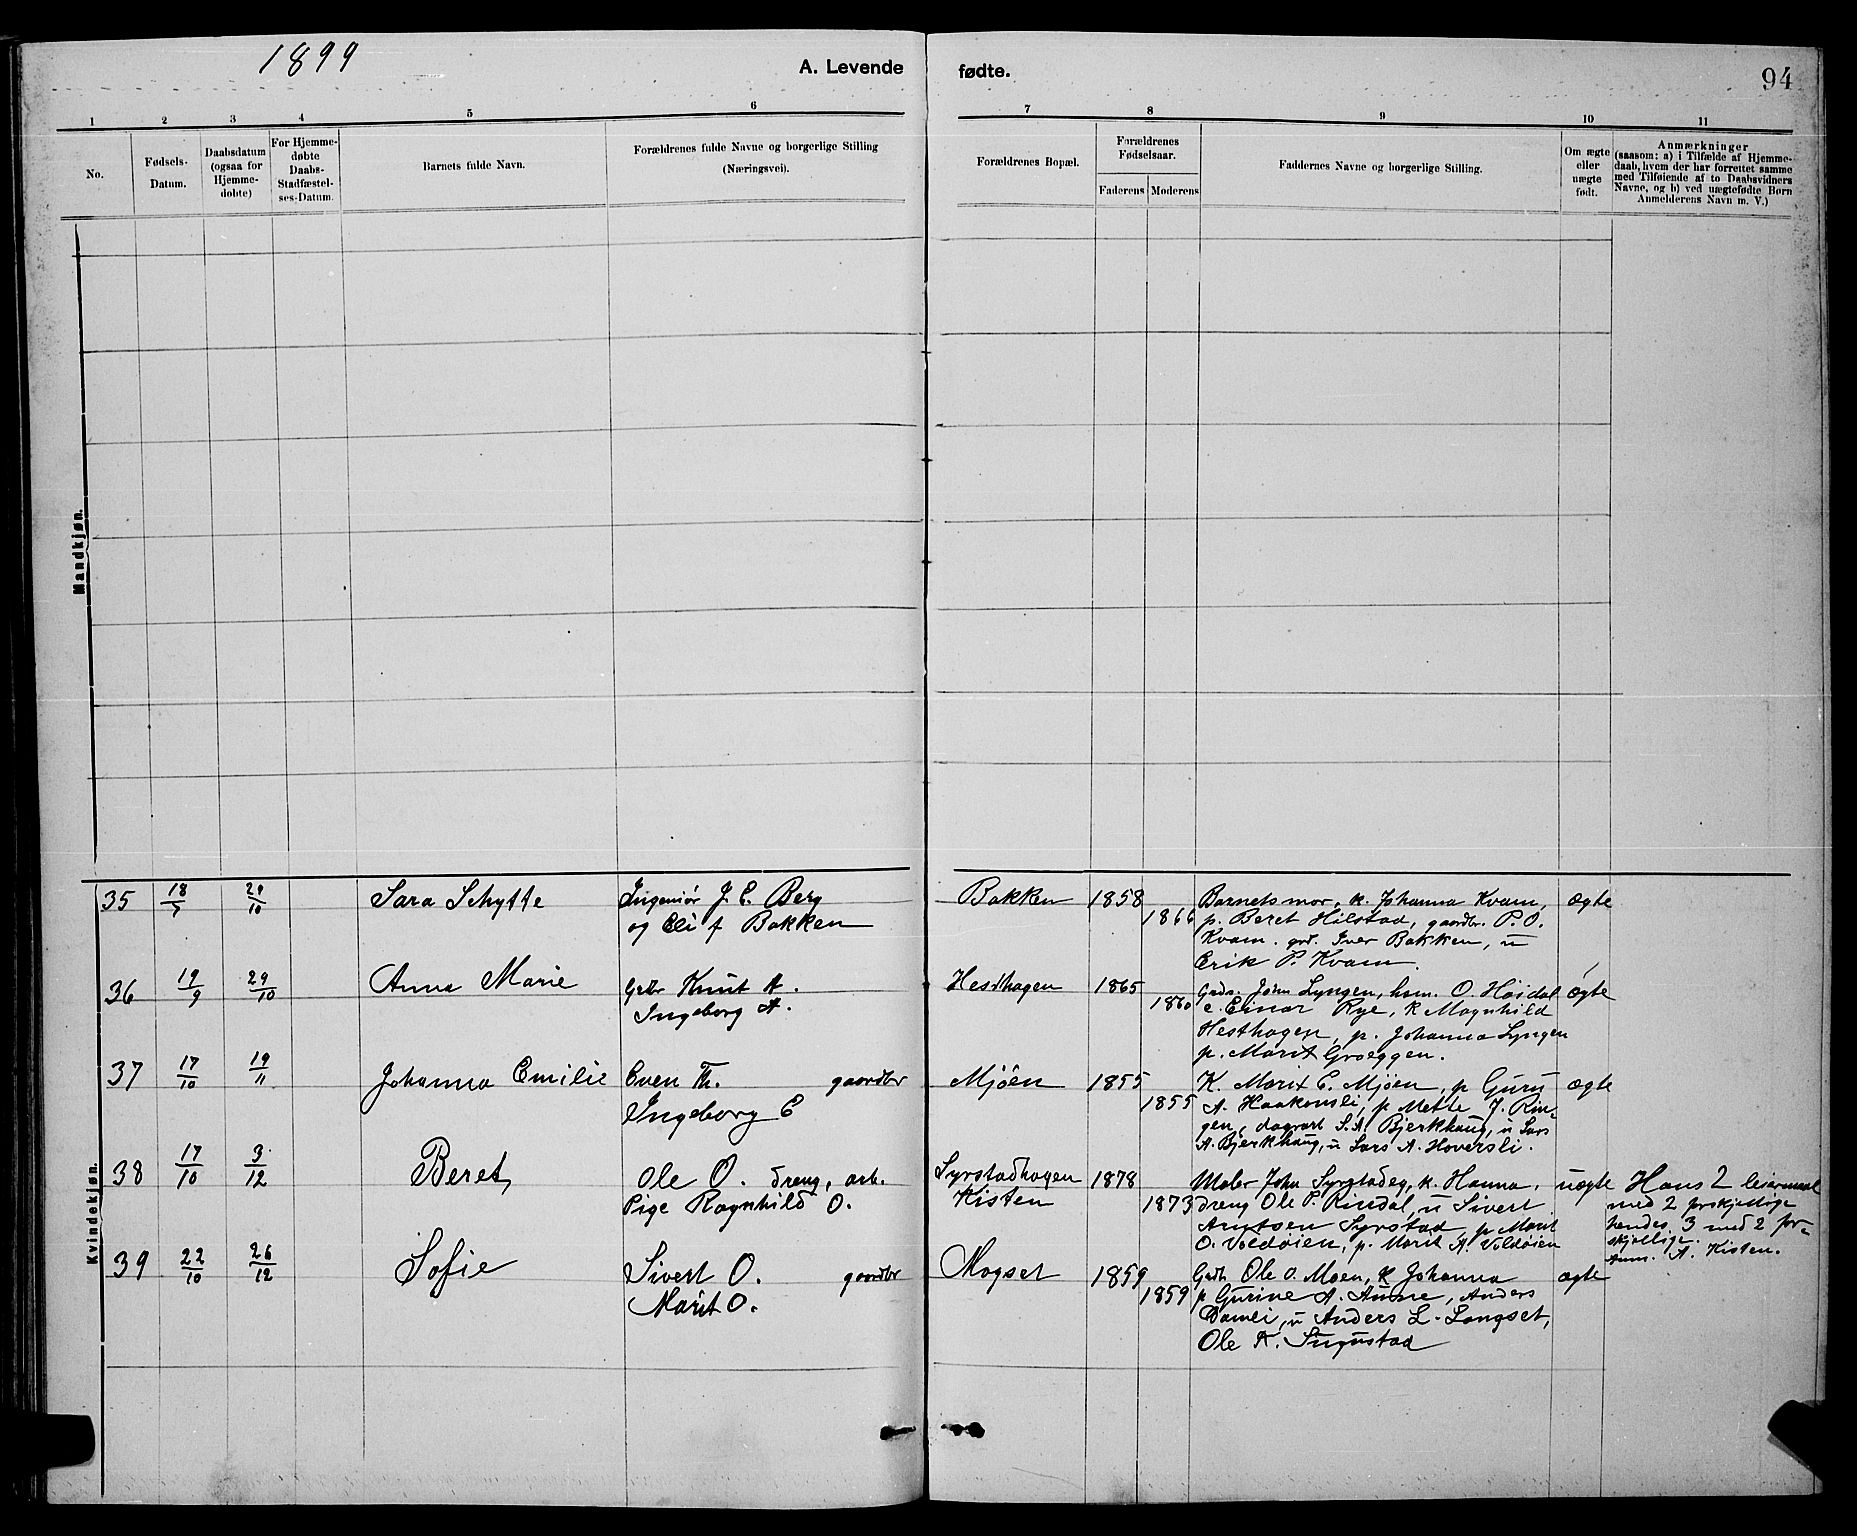 1899
A. Levende fødte.
94
1 2 3 4 5 6 7 8 9 10 11
No.
Fødsels-
Datum.
Daabsdatum
(ogsaa for
Hjemme-
døbte)
For Hjemme-
døbte
Daabs-
Stadfæstel-
ses-Datum.
Barnets fulde Navn.
Forældrenes fulde Navne og borgerlige Stilling
(Næringsvei).
Forældrenes Bopæl.
Forældrenes
Fødselsaar.
Faderens Moderens
Faddernes Navne og borgerlige Stilling.
Om ægte
eller
uægte
født.
Anmærkninger
(saasom: a) i Tilfælde af Hjemme-
daab, hvem der har forrettet samme
med Tilføiende af to Daabsvidners
Navne, og b) ved uægtefødte Børn
Anmelderens Navn m. V.)
Mandkjøn.
Kvindekjøn.
35 18/7 29/10 Sara Schytte
Ingeniør J. E. Berg
og Eli f Bakken
Bakken 1858
1866
Barnets mor, k. Johanna Kvam,
p. Beret Hilstad, gaardbr. P. O.
Kvam. grd. Iver Bakken, u
Erik P. Kvam.
ægte
36 19/9 29/10 Anna Marie
Gbr Knut A.
Ingeborg A.
Hesthagen 1865
1860
Grdr. John Lyngen, hsm. O. Høidal
e. Einar Rye, k Magnhild
Hesthagen, p. Johanna Lyngen
p. Marit Groeggen.
ægte
37 17/10 19/11 Johanna Emilie
Even Th. gaardbr
Ingeborg E
Mjøen 1855
1855
K. Marit E. Mjøen, p Guru
A. Haakonsli, p Mette J. Rin-
gen, dagarb S. A. Bjerkhaug, u Lars
A. Bjerkhaug, u Lars A. Hoversli.
ægte
38 17/10 3/12 Beret
Ole O. dreng, arb.
Pige Ragnhild O.
Syrstadhagen
Kisten
1878
1873
Maler John Syrstadeg, k. Hanna,
dreng Ole P. Rindal, u Sivert
Arntsen Syrstad, p Marit
O. Voldøien, p. Marit A. Voldøien
uægte
Hans 2 leiermaal
med 2 forskjellige
hendes 3 med 2 for-
skjellige.
Anm. A. Kisten.
39 22/10 26/12 Sofie
Sivert O. gaardbr
Marit O.
Mogset 1859
1859
Gadb Ole O. Moen, k Johanna
p Gurine A. Aune, Anders
Damli, u Anders L. Langset,
Ole K. Sugustad
ægte